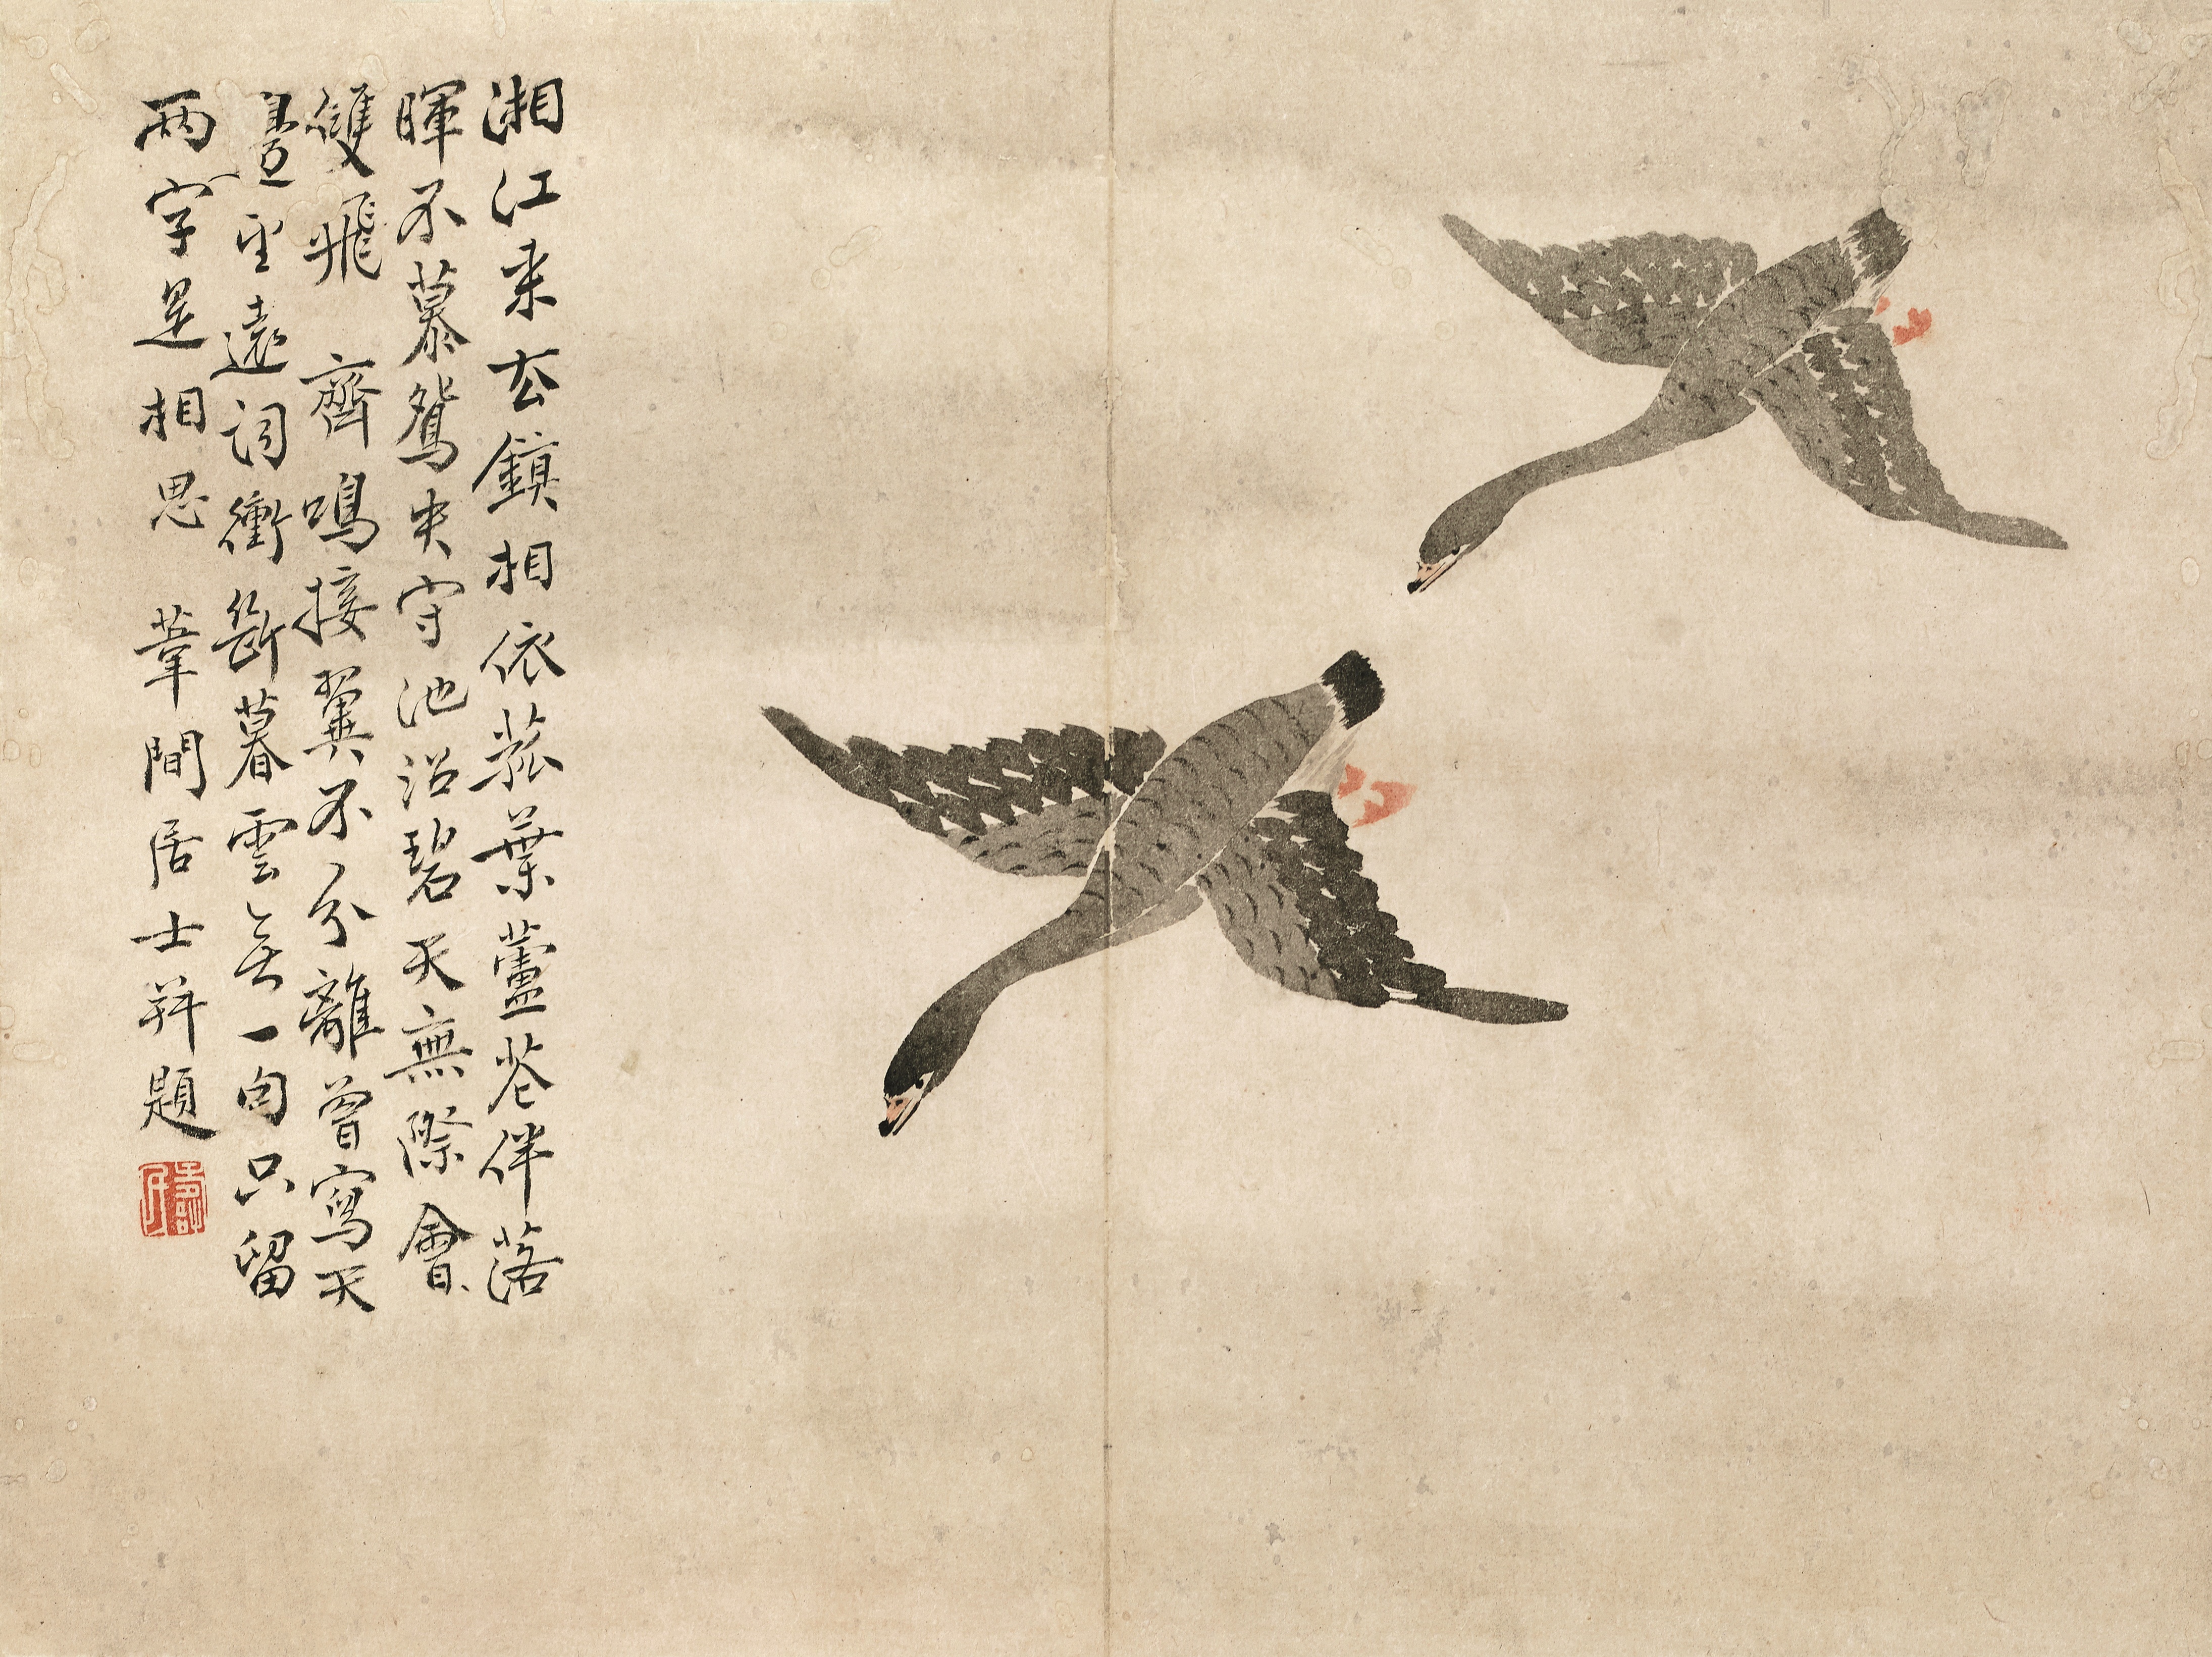 湘江来去鎮相依菰葉蘆花伴落
暉不慕鴛央守池沼碧天無際會
雙飛 齊鳴接翼不分離曾寫天
望遠詞衝斷暮雲無一句只留
兩字是相思 葦間居士并題